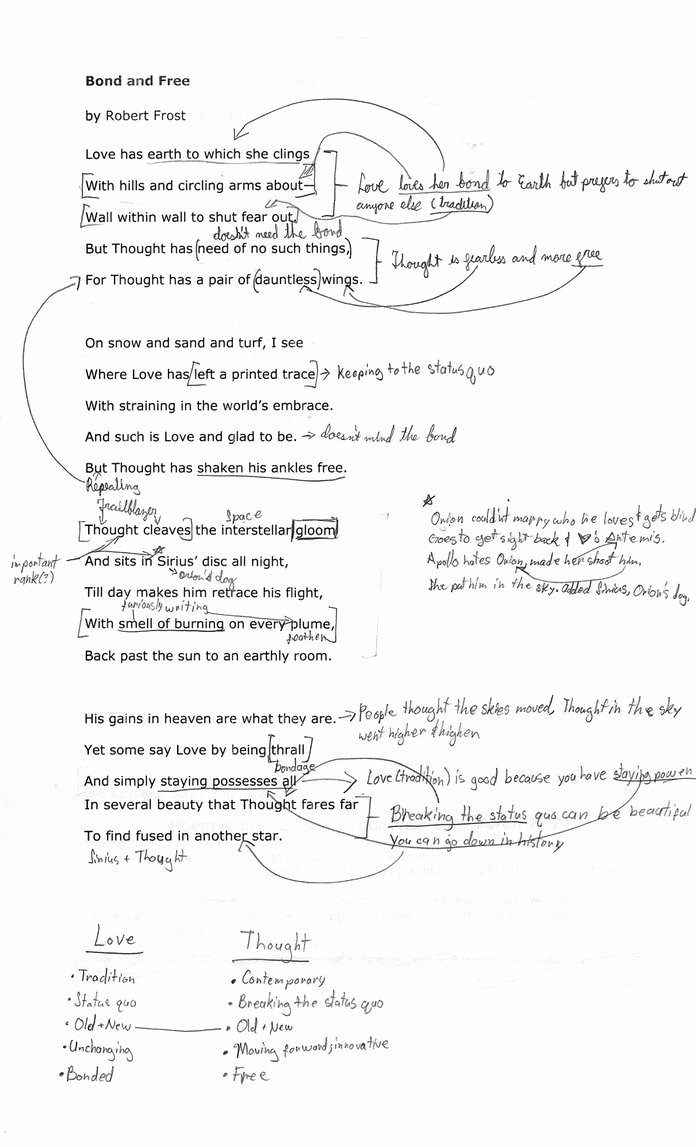 Bond and Free
by Robert Frost
Love has earth to which she clings
With hills and circling arms about—
Wall within wall to shut fear out.
Love loves her bond to Earth but prefers to shut out
anyone else (tradition)
doesn't need the bond
But Thought has need of no such things,
For Thought has a pair of dauntless wings.
Thought is fearless and more free
On snow and sand and turf, I see
Where Love has left a printed trace → keeping to the status quo
With straining in the world's embrace.
And such is Love and glad to be. → doesn't mind the bond
But Thought has shaken his ankles free.
Repeating
Trailblazer
Space
Thought cleaves the interstellar gloom
important
rank(?)
And sits in Sirius' disc all night,
Orion's dog
Till day makes him retrace his flight,
furiously writing
With smell of burning on every plume,
feather
Back past the sun to an earthly room.
Orion couldn't marry who he loves & gets blind
Goes to get sight back & ♥'s Artemis.
Apollo hates Orion, made her shoot him.
She put him in the sky. added Sirius, Orion's dog.
His gains in heaven are what they are. → People thought the skies moved, Thought in the sky
went higher & higher
Yet some say Love by being thrall
bondage
And simply staying possesses all
Love (tradition) is good because you have staying power
In several beauty that Thought fares far
To find fused in another star.
Breaking the status quo can be beautiful
You can go down in history
Sirius + Thought
Love Thought
• Tradition • Contemporary
• Status quo • Breaking the status quo
• Old + New • Old + New
• Unchanging • Moving forward; innovative
• Bonded • Free